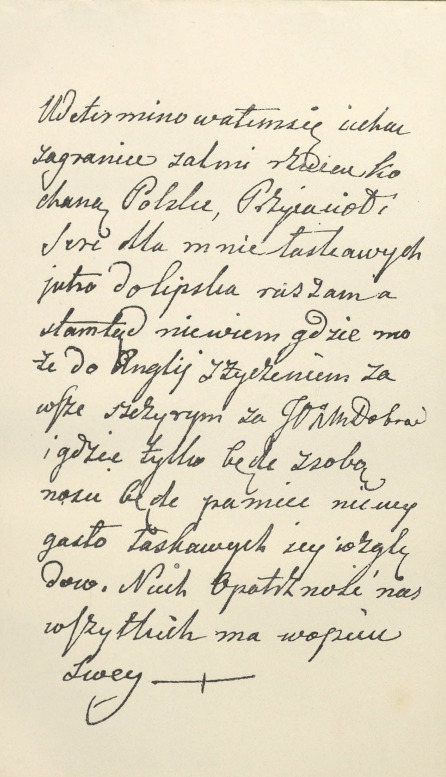 Udeterminowałemsię iechac
zagranice zalmi rzucic ko
chaną Polskę, Przyiaciół i
Serc dla mnie łaskawych
jutro do lipska ruszam a
stamtąd niewiem gdzie mo
że do Anglij z życzeniem za
wsze szczyrym za JWWMDobro
i gdzie tylko będę z sobą
nosic będę pamiec niewy
gasło łaskawych iey wzglę
dow. Niech Opatrzność nas
wszytkich ma wopiece
Swey